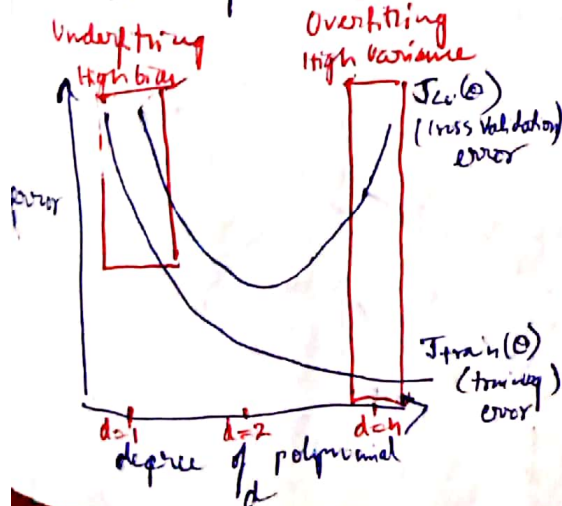 Underfitting
High bias
Overfitting
High Variance
Jcv(Θ)
(cross validation)
error
error
Jtrain(Θ)
(training)
error
d=1
d=2
d=4
degree of polynomial
d